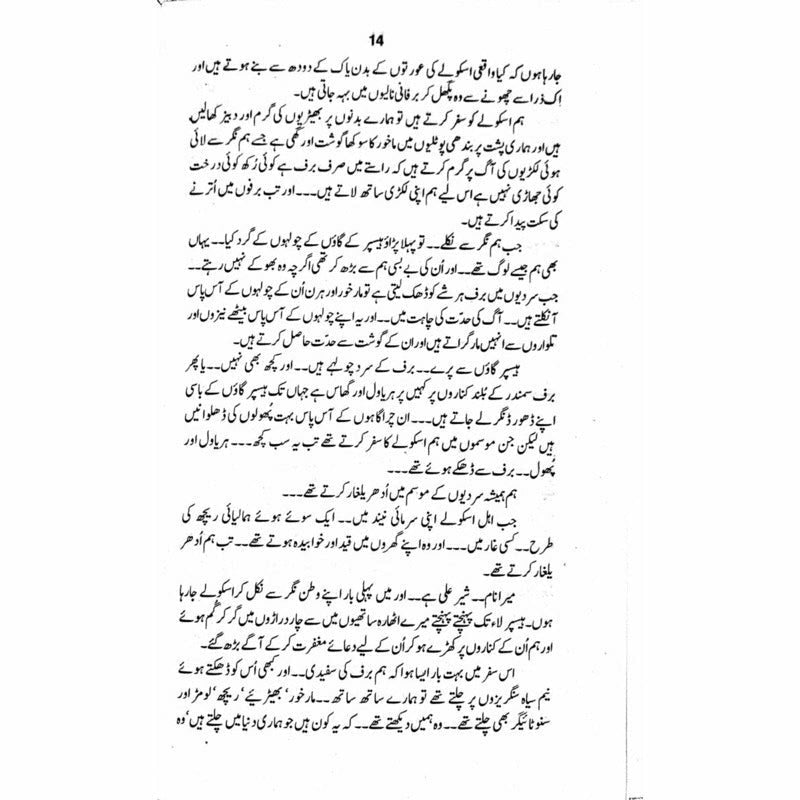 14
جا رہا ہوں کہ کیا واقعی اسکولے کی عورتوں کے بدن یاک کے دودھ سے بنے ہوتے ہیں اور
اِک ذرا سے چھونے سے وہ پگھل کر برفانی نالیوں میں بہہ جاتی ہیں۔
ہم اسکولے کو سفر کرتے ہیں تو ہمارے بدنوں پر بھیڑیوں کی گرم اور دبیز کھالیں
ہیں اور ہماری پشت پر بندھی پوٹلیوں میں مارخور کا سوکھا گوشت اور گھی ہے جسے ہم نگر سے لائی
ہوئی لکڑیوں کی آگ پر گرم کرتے ہیں کہ راستے میں صرف برف ہے کوئی رُکھ کوئی درخت
کوئی جھاڑی نہیں ہے اس لیے ہم اپنی لکڑی ساتھ لاتے ہیں۔۔۔ اور تب برفوں میں اُترنے
کی سکت پیدا کرتے ہیں۔
جب ہم نگر سے نکلے۔۔ تو پہلا پڑاؤ ہیسپر کے گاؤں کے چولہوں کے گرد کیا۔۔ یہاں
بھی ہم جیسے لوگ تھے۔۔ اور اُن کی بے بسی ہم سے بڑھ کر تھی اگرچہ وہ بھوکے نہیں رہتے۔۔
جب سردیوں میں برف ہر شے کو ڈھک لیتی ہے تو مارخور اور ہرن اُن کے چولہوں کے آس پاس
آ نکلتے ہیں۔۔ آگ کی حدّت کی چاہت میں۔۔ اور یہ اپنے چولہوں کے آس پاس بیٹھے نیزوں اور
تلواروں سے انہیں مار گراتے ہیں اور ان کے گوشت سے حدّت حاصل کرتے ہیں۔
ہیسپر گاؤں سے پرے۔۔ برف کے سرد چولہے ہیں۔۔ اور کچھ بھی نہیں۔۔ یا پھر
برف سمندر کے بُلند کناروں پر کہیں پر ہریاول اور گھاس ہے جہاں تک ہیسپر گاؤں کے باسی
اپنے ڈھور ڈنگر لے جاتے ہیں۔۔۔ ان چراگاہوں کے آس پاس بہت پھولوں کی ڈھلوانیں
ہیں لیکن جن موسموں میں ہم اسکولے کا سفر کرتے تھے تب یہ سب کچھ۔۔۔ ہریاول اور
پھول۔۔ برف سے ڈھکے ہوئے تھے۔۔۔
ہم ہمیشہ سردیوں کے موسم میں اُدھر یلغار کرتے تھے۔۔۔
جب اہل اسکولے اپنی سرمائی نیند میں۔۔ ایک سوئے ہوئے ہمالیائی ریچھ کی
طرح۔۔ کسی غار میں۔۔۔ اور وہ اپنے گھروں میں قید اور خوابیدہ ہوتے تھے۔۔ تب ہم اُدھر
یلغار کرتے تھے۔
میرا نام۔۔ شیر علی ہے۔۔ اور میں پہلی بار اپنے وطن نگر سے نکل کر اسکولے جا رہا
ہوں۔ ہیسپر لاء تک پہنچتے پہنچتے میرے اٹھارہ ساتھیوں میں سے چار دراڑوں میں گر کر گُم ہوئے
اور ہم اُن کے کناروں پر کھڑے ہو کر اُن کے لیے دعائے مغفرت کر کے آگے بڑھ گئے۔
اس سفر میں بہت بار ایسا ہوا کہ ہم برف کی سفیدی۔۔ اور کبھی اُس کو ڈھکتے ہوئے
نیم سیاہ سنگریزوں پر چلتے تھے تو ہمارے ساتھ ساتھ۔۔ مارخور، بھیڑیئے، ریچھ، لومڑ اور
سنو ٹائیگر بھی چلتے تھے۔۔ وہ ہمیں دیکھتے تھے۔۔ کہ یہ کون ہیں جو ہماری دنیا میں چلتے ہیں، وہ